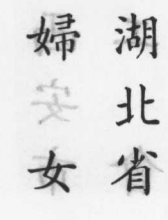 湖北省
婦女